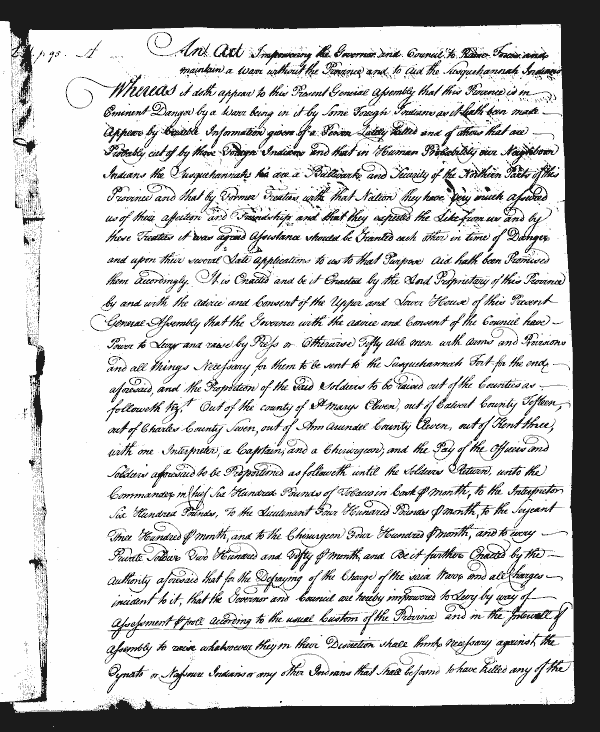 p. 95. A An Act Impowering the Governor and Council to Raise Forces and
maintain a Warr without the Province and to Aid the Susquehannah Indians
Whereas it doth appear to this Present General Assembly that this Province is in
Eminent Danger by a Warr being in it by Some Foreign Indians as it hath been made
Appear by Information given of a Person Lately killed and of others that are
Probably cut of by those Foreign Indians and that in Human Probability our Neighbour
Indians the Susquehannahs are a Bullwark and Security of the Northern Parts of this
Province and that by Former Treaties with that Nation they have very much assured
us of their affection and Friendship and that they expected the Like from us and by
these Treaties it was agreed Assistance should be Granted each other in time of Danger
and upon their several Late Applications to us to that Purpose Aid hath been Promised
them Accordingly. It is Enacted and be it Enacted by the Lord Proprietary of this Province
by and with the advice and Consent of the Upper and Lower House of this Present
General Assembly that the Governor with the advice and Consent of the Council have
Power to Levy and raise by Press or Otherwise Fifty able men with Arms and Provisions
and all things Necessary for them to be sent to the Susquehannah Fort for the ends
aforesaid, and the Proportion of the said Soldiers to be raised out of the Counties as
followeth Vizt. Out of the county of St Marys Eleven, out of Calvert County Fifteen,
out of Charles County Seven, out of Ann Arundel County Eleven, out of Kent three,
with one Interpreter, a Captain, and a Chirurgeon, and the Pay of the Officers and
Soldiers aforesaid to be Proportioned as followeth until the Soldiers Return, unto the
Commander in Chief Six Hundred Pounds of Tobacco in Cask ⅌ month, to the Interpreter
Six Hundred Pounds, To the Lieutenant Four Hundred Pounds ⅌ month, to the Serjeant
Three Hundred ⅌ month, and to the Chirurgeon Four Hundred ⅌ month, and to every
Private Soldier Two Hundred and Fifty ⅌ month, and Be it further Enacted by the
Authority aforesaid that for the Defraying of the Charge of the said Warr and all Charges
incident to it, that the Governor and Council are hereby impowered to Levy by way of
Assessment ⅌ poll According to the usual Custom of the Province and in the Intervall of
Assembly to raise whatsoever they in their Discretion shall think necessary against the
Cynato or Nayssone Indians or any other Indians that shall be found to have killed any of the